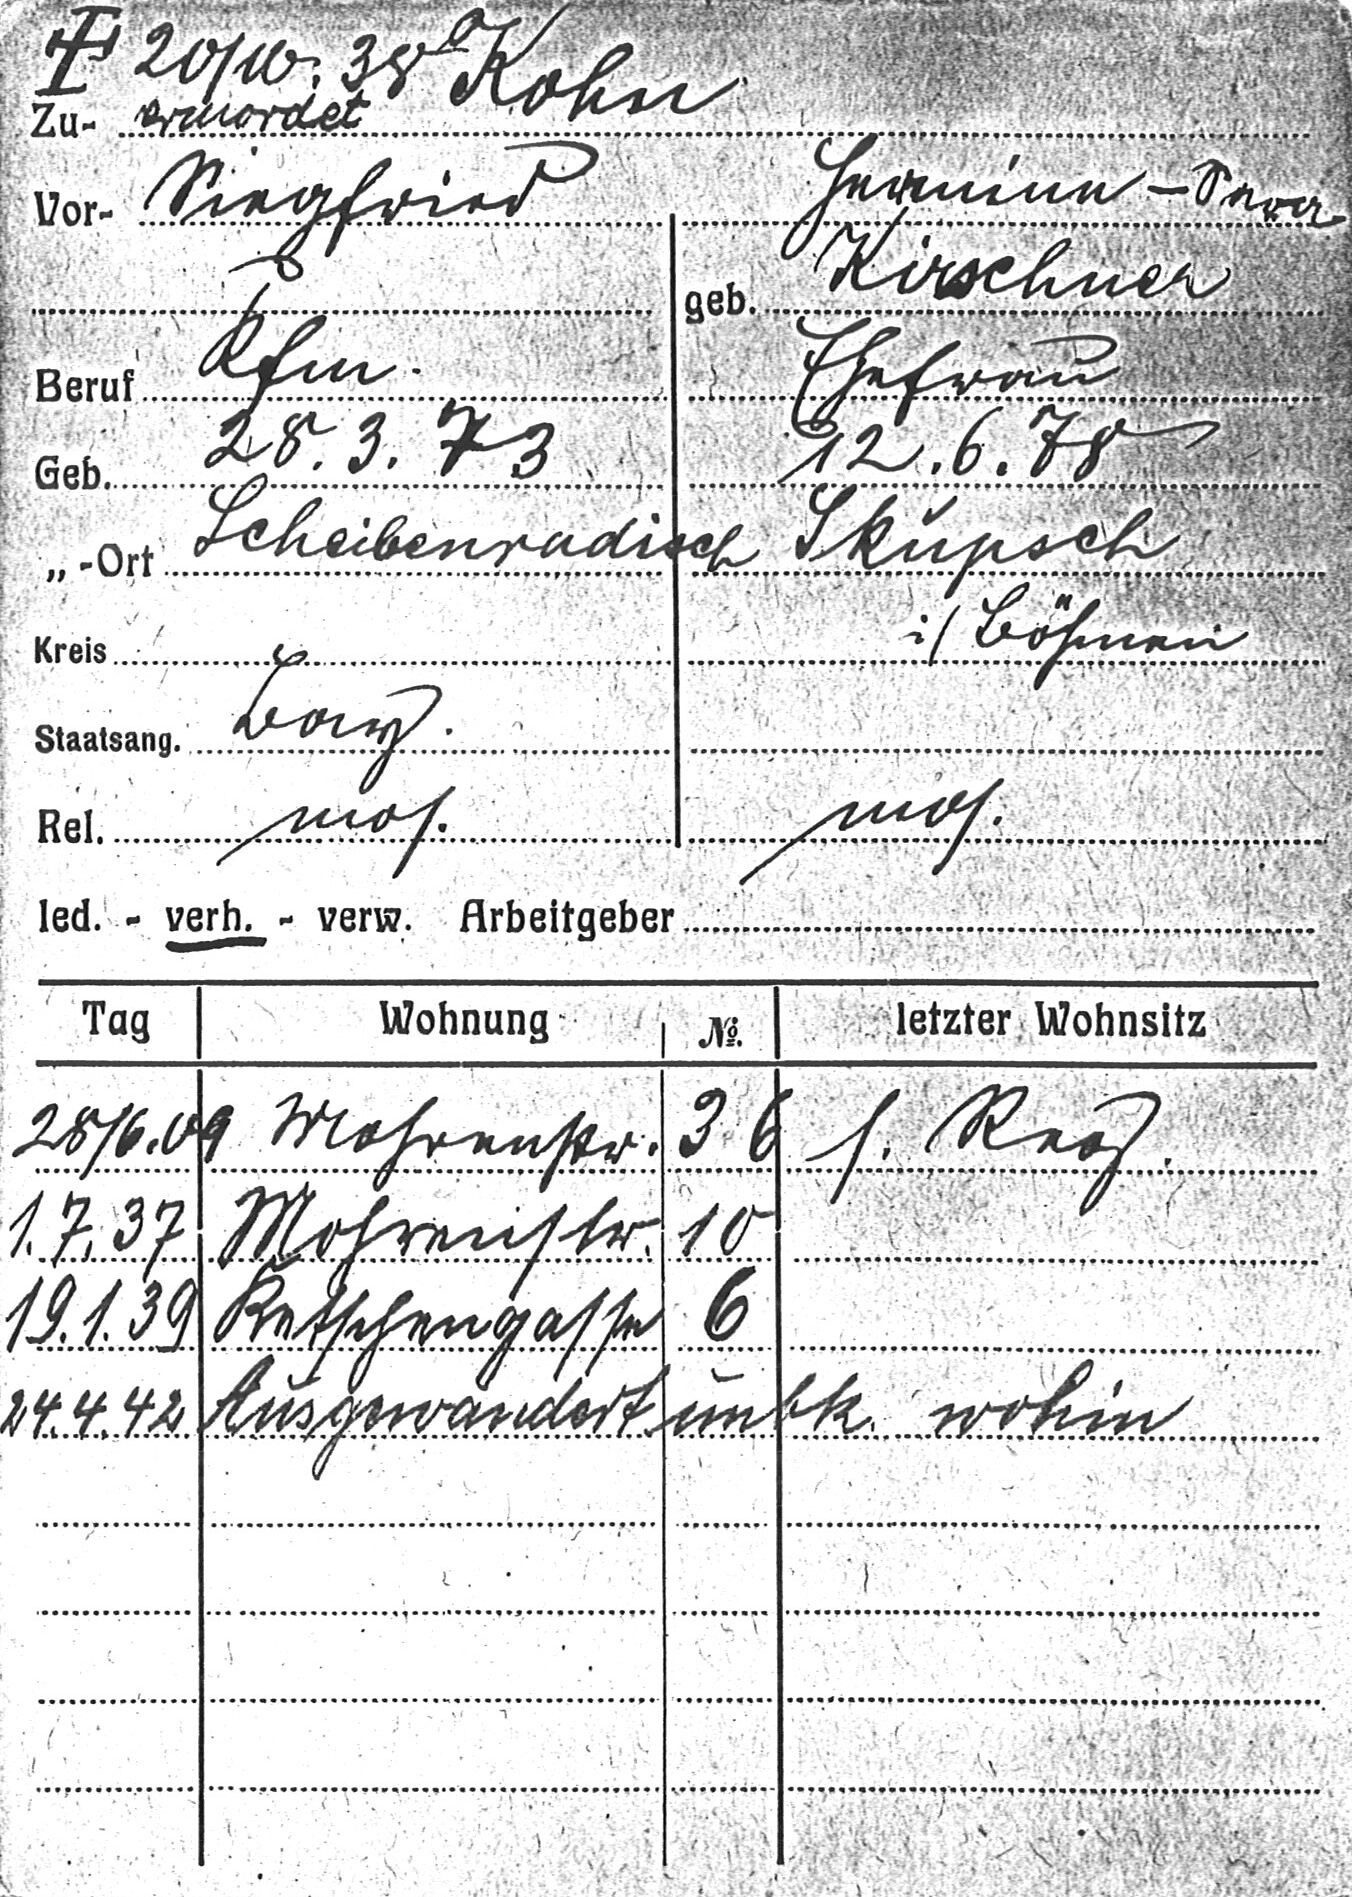 20/10. 38 Kohn
Zu- ermordet
Vor- Siegfried Hermine – Sara
geb. Kirschner
Beruf Kfm. Ehefrau
Geb. 28. 3. 73 12. 6. 78
„ -Ort Scheibenradisch Skupsch
Kreis i/ Böhmen
Staatsang. Bay.
Rel. mos. mos.
led. - verh. - verw. Arbeitgeber
Tag Wohnung №. letzter Wohnsitz
28/6. 09 Mohrenstr. 36 s.
1. 7. 37 Mohrenstr. 10
19. 1. 39 Ketschengasse 6
24. 4. 42 Ausgewandert unbk. wohin